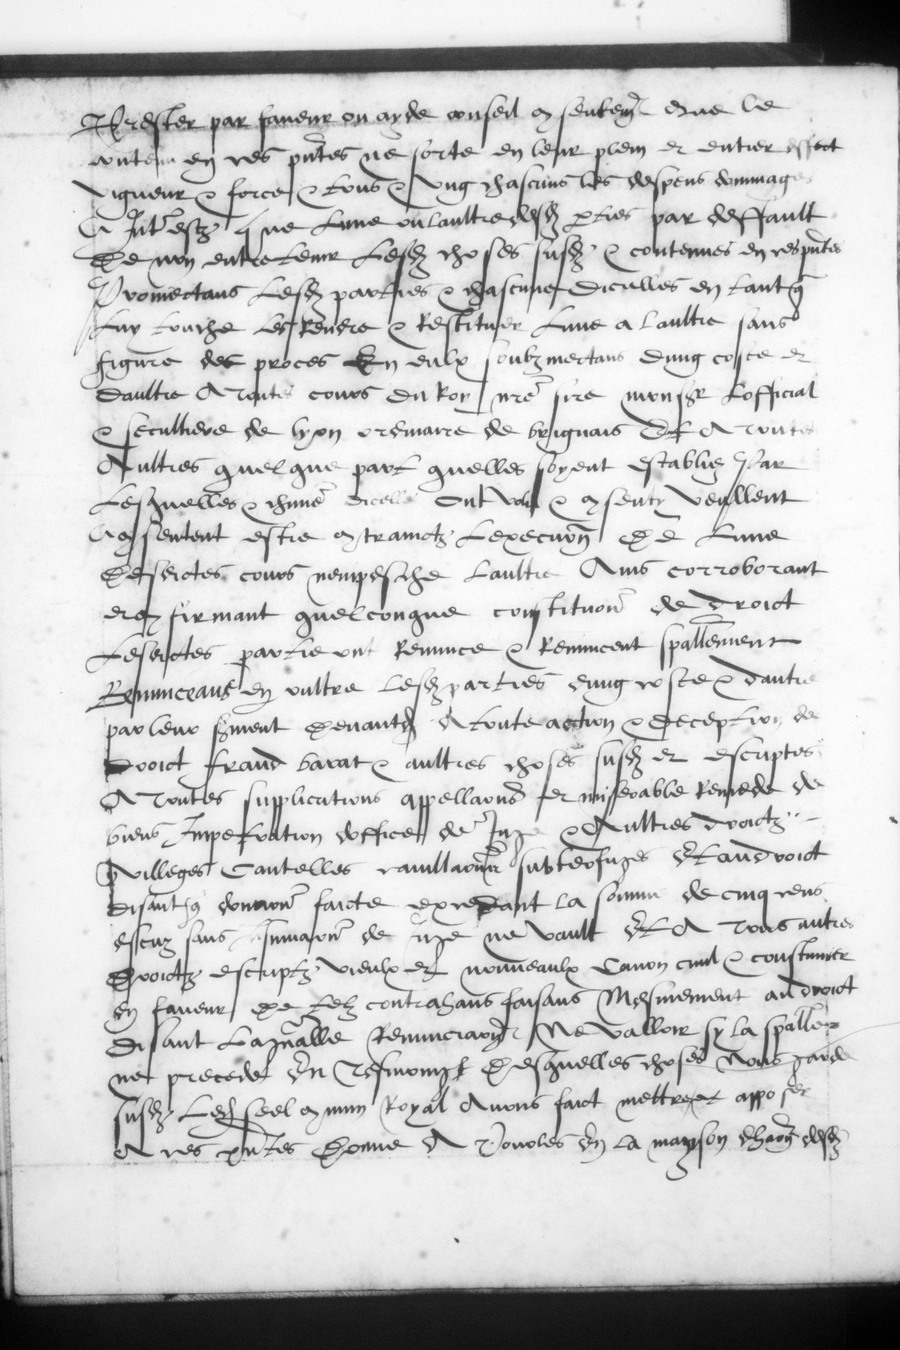 Prester par faveur ou ayde conseil consentemt Et que le
contenu en ces pntes ne sorte en leur plein et entier effect
vigueur & force & tous & ung chascuns les despens dommages
& Interestz Que Lune ou laultre desd pties par deffault
De non entretenir Lesd choses susd & contenues en ces pntes
Promectans Lesd parties & chascune dicelles en tant q
Luy touche Les Rendre & Restituer Lune a laultre sans
figure des proces En eulx soubzmectans dung coste et
daultre A toutes cours du Roy nre sire monsr Lofficial
& seculliere de lyon ordinaire de brignais Et A toutes
Aultres quelque part quelles soyent establies Par
Lesquelles & chune dicelles Ont volu & consenty veullent
& consentent estre contrainctz Lexecution De Lune
Desdictes cours nempesche Laultre Ains corroborant
et confirmant quelconque constitution de droict
Lesdictes partie ont Renunce & Renuncent spallement
Renunceans en oultre lesd parties dung coste & daultre
par leur serment devant d A toute action & deception de
droict fraud barat & aultres choses susd et escriptes
A toutes supplications appellations et miserable Remede de
biens Impetration doffice de Juge & Aultres droictz
privilleges Cautelles cavillations subterfuges Et au droict
disant q donation faicte excedant la somme de cinq cens
escuz sans Insinuation de juge ne vault Et A tous autres
Droictz escriptz vieulx et nouveaulx Canon civil & coustumier
en faveur De telz contrahans faisans Mesmement au droict
disant La gnalle Renunciation Ne valloir sy la spalle
ne precede En Tesmoingt Desquelles choses Nous garde
susd Led seel commun Royal Avons faict mettre et apposer
A ces pntes Donne A en la mayson desd